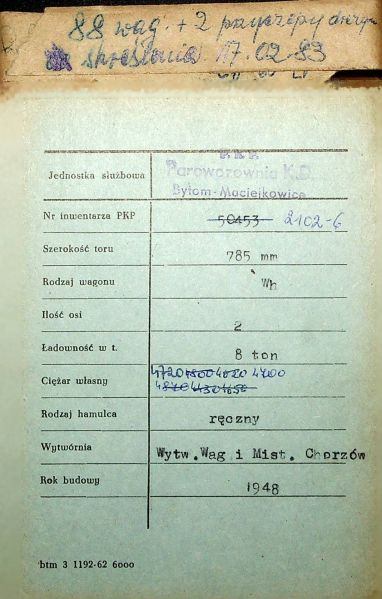 88 wag. + 2 przyczepy
skreślenia 17.02.83
PKP
Jednostka służbowa Parowozownia K.D.
Bytom-Maciejkowice
Nr inwentarza PKP 50453 2102-6
Szerokość toru 785 mm
Rodzaj wagonu Wh
Ilość osi 2
Ładowność w t. 8 ton
4720 4800 4020 4700
Ciężar własny
Rodzaj hamulca ręczny
Wytwórnia Wytw.Wag i Mist. Chorzów
Rok budowy 1948
btm 3 1192-62 6000